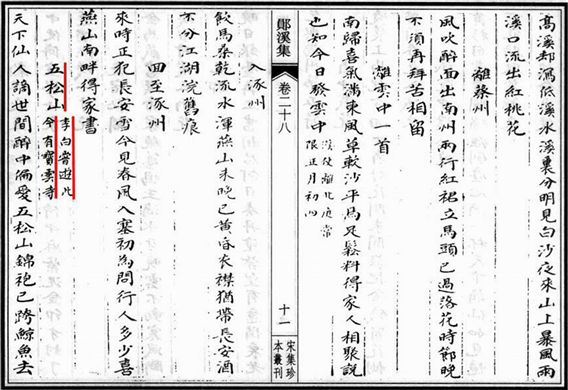 高溪却瀉低溪水溪裏分明見白沙夜來山上暴風雨
溪口流出紅桃花
離蔡州
風吹醉面出南州兩行紅裙立馬頭已過落花時節晚
不須再拜苦相留
離雲中一首
南歸喜氣滿東風草軟沙平馬足鬆料得家人相聚說
也知今日發雲中
漢使離北庭常
限正月初四
鄖溪集
卷二十八
十一
宋集珍
本叢刊
入涿州
飲馬桑乾流水渾燕山未晚已黃昏衣襟猶帶長安酒
不分江湖浣舊痕
回至涿州
來時正犯長安雪今見春風入塞初為問行人多少喜
燕山南畔得家書
五松山
李白嘗遊此
今有寶雲寺
天下仙人謫世間醉中偏愛五松山錦袍已跨鯨魚去